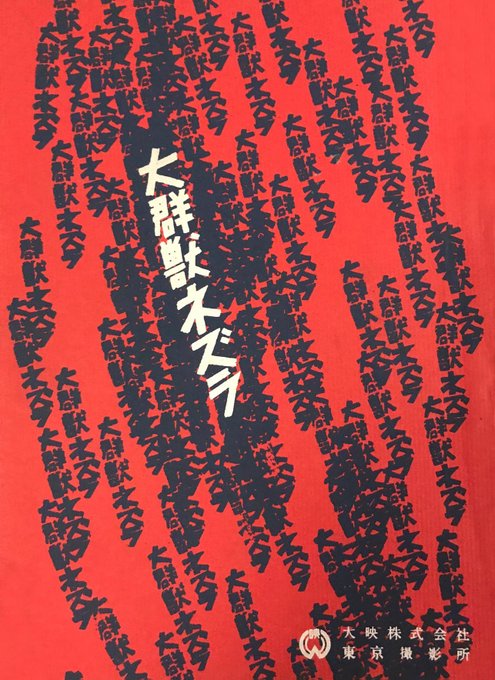 大群獣ネズラ
映
大映株式会社
東京撮影所